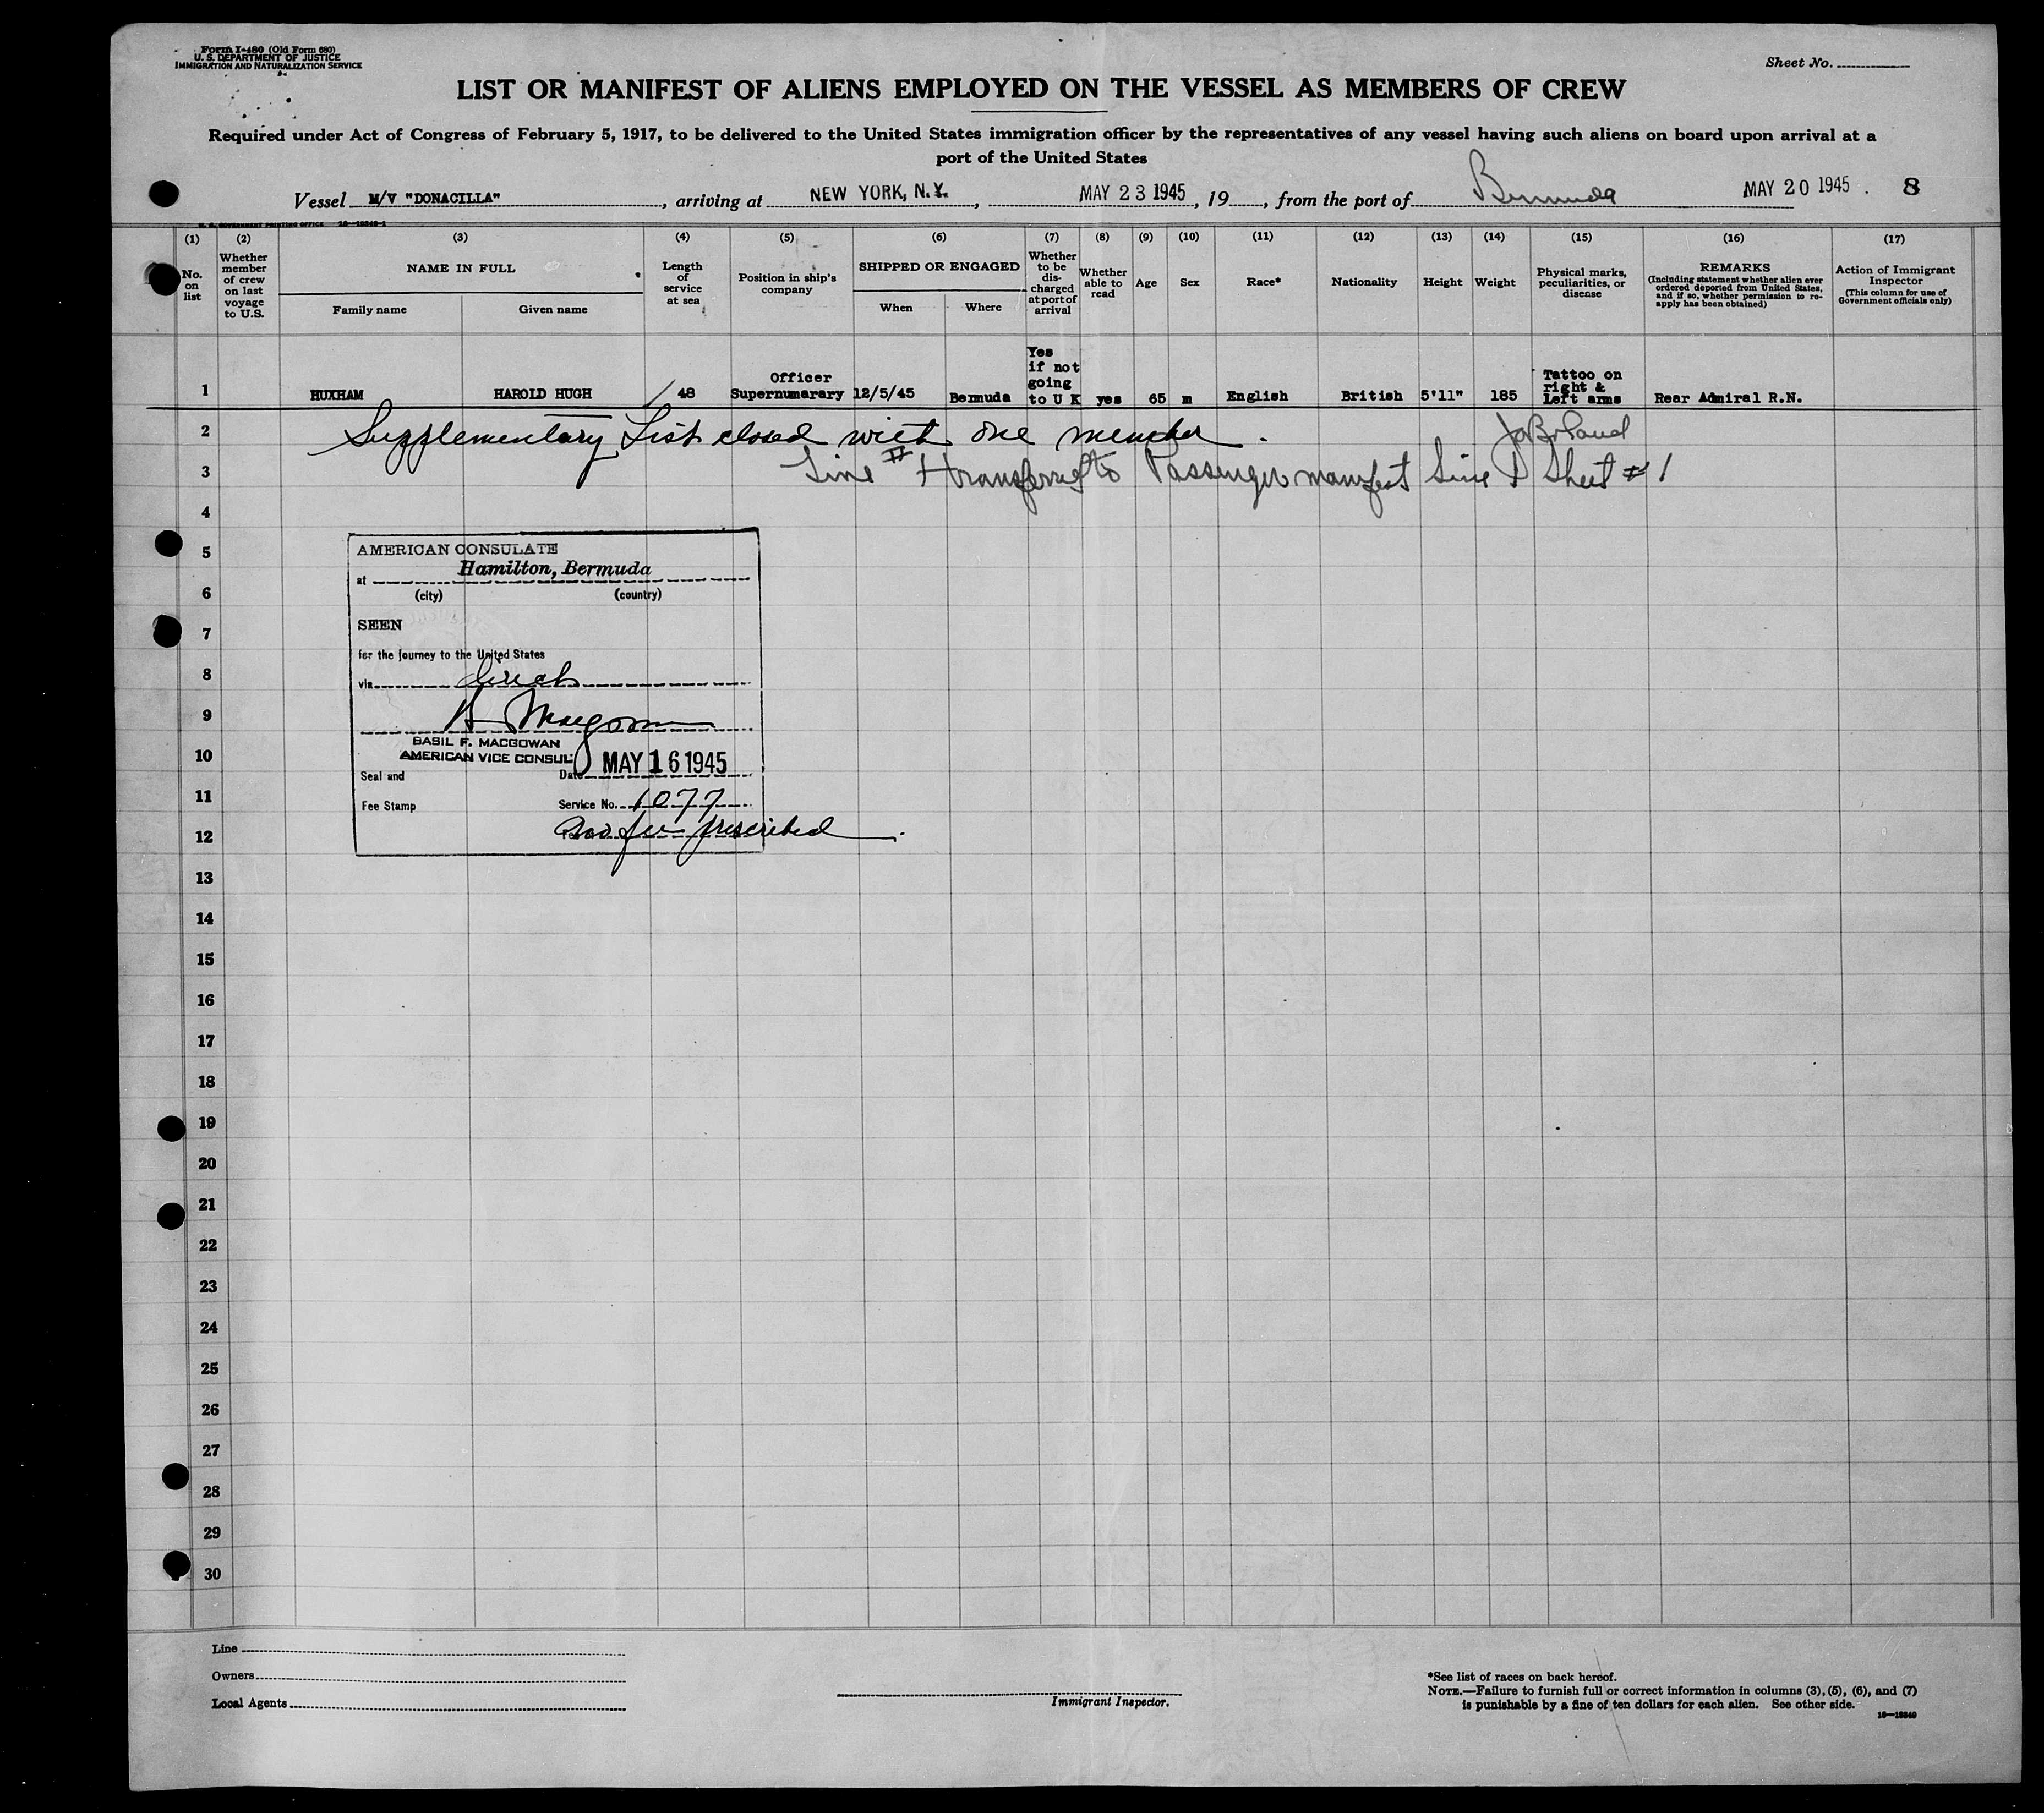 Form I-480 (Old Form 680)
U. S. DEPARTMENT OF JUSTICE
IMMIGRATION AND NATURALIZATION SERVICE
Sheet No.
LIST OR MANIFEST OF ALIENS EMPLOYED ON THE VESSEL AS MEMBERS OF CREW
Required under Act of Congress of February 5, 1917, to be delivered to the United States immigration officer by the representatives of any vessel having such aliens on board upon arrival at a
port of the United States
Vessel M/V "DONACILLA", arriving at NEW YORK, N.Y., MAY 23 1945, 19, from the port of Bermuda MAY 20 1945. 8
U. S. GOVERNMENT PRINTING OFFICE
(1) (2) (3) (4) (5) (6) (7) (8) (9) (10) (11) (12) (13) (14) (15) (16) (17)
No. on list
Whether member of crew on last voyage to U.S.
NAME IN FULL
Family name
Given name
Length of service at sea
Position in ship's company
SHIPPED OR ENGAGED
When
Where
Whether to be discharged at port of arrival
Whether able to read
Age
Sex
Race*
Nationality
Height
Weight
Physical marks, peculiarities, or disease
REMARKS
(Including statement whether alien ever ordered deported from United States, and if so, whether permission to re-apply has been obtained)
Action of Immigrant Inspector
(This column for use of Government officials only)
1 HUXHAM HAROLD HUGH 48 Officer Supernumarary 12/5/45 Bermuda Yes if not going to U K yes 65 m English British 5'11" 185 Tattoo on right & Left arms Rear Admiral R.N.
2 Supplementary List closed with one member.
3 Line # 1 transferred to Passenger manifest Line 1 Sheet # 1
4
5
6
7
8
9
10
11
12
13
14
15
16
17
18
19
20
21
22
23
24
25
26
27
28
29
30
AMERICAN CONSULATE
at Hamilton, Bermuda
(city) (country)
SEEN
for the journey to the United States
via direct
BASIL F. MACGOWAN
AMERICAN VICE CONSUL
Seal and Date MAY 16 1945
Fee Stamp Service No. 1077
no fee prescribed
Line
Owners
Local Agents
Immigrant Inspector.
*See list of races on back hereof.
NOTE.—Failure to furnish full or correct information in columns (3), (5), (6), and (7)
is punishable by a fine of ten dollars for each alien. See other side.